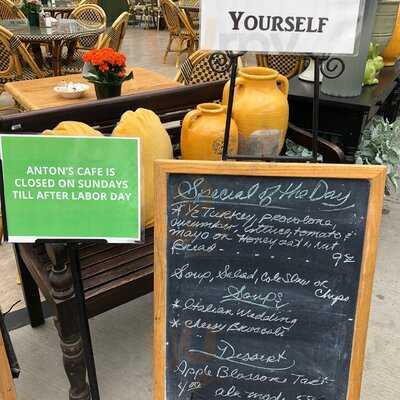 YOURSELF
ANTON'S CAFE IS
CLOSED ON SUNDAYS
TILL AFTER LABOR DAY
Special of the Day
Turkey, provolone,
cucumber, lettuce, tomato, &
mayo on Honey
Bread
Soup, Salad, Cole Slaw or
Chips
Soup:
* Italian Wedding
* Cheesy Broccoli
Dessert
Apple Blossom Tart
4.00 ala mode